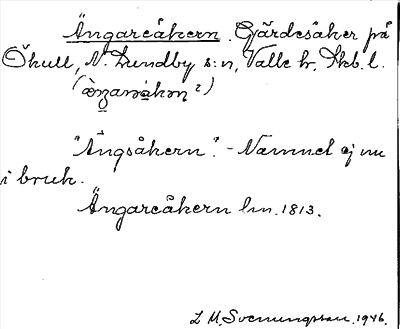 Ängareåkern. Gärdesåker på
Öhull, N. Lundby s:n, Valle hr, Skb. l.
(
"Ängsåkern". - Namnet ej nu
i bruk.
Ängareåkern lm. 1813.
L M. Svenungsson. 1946.